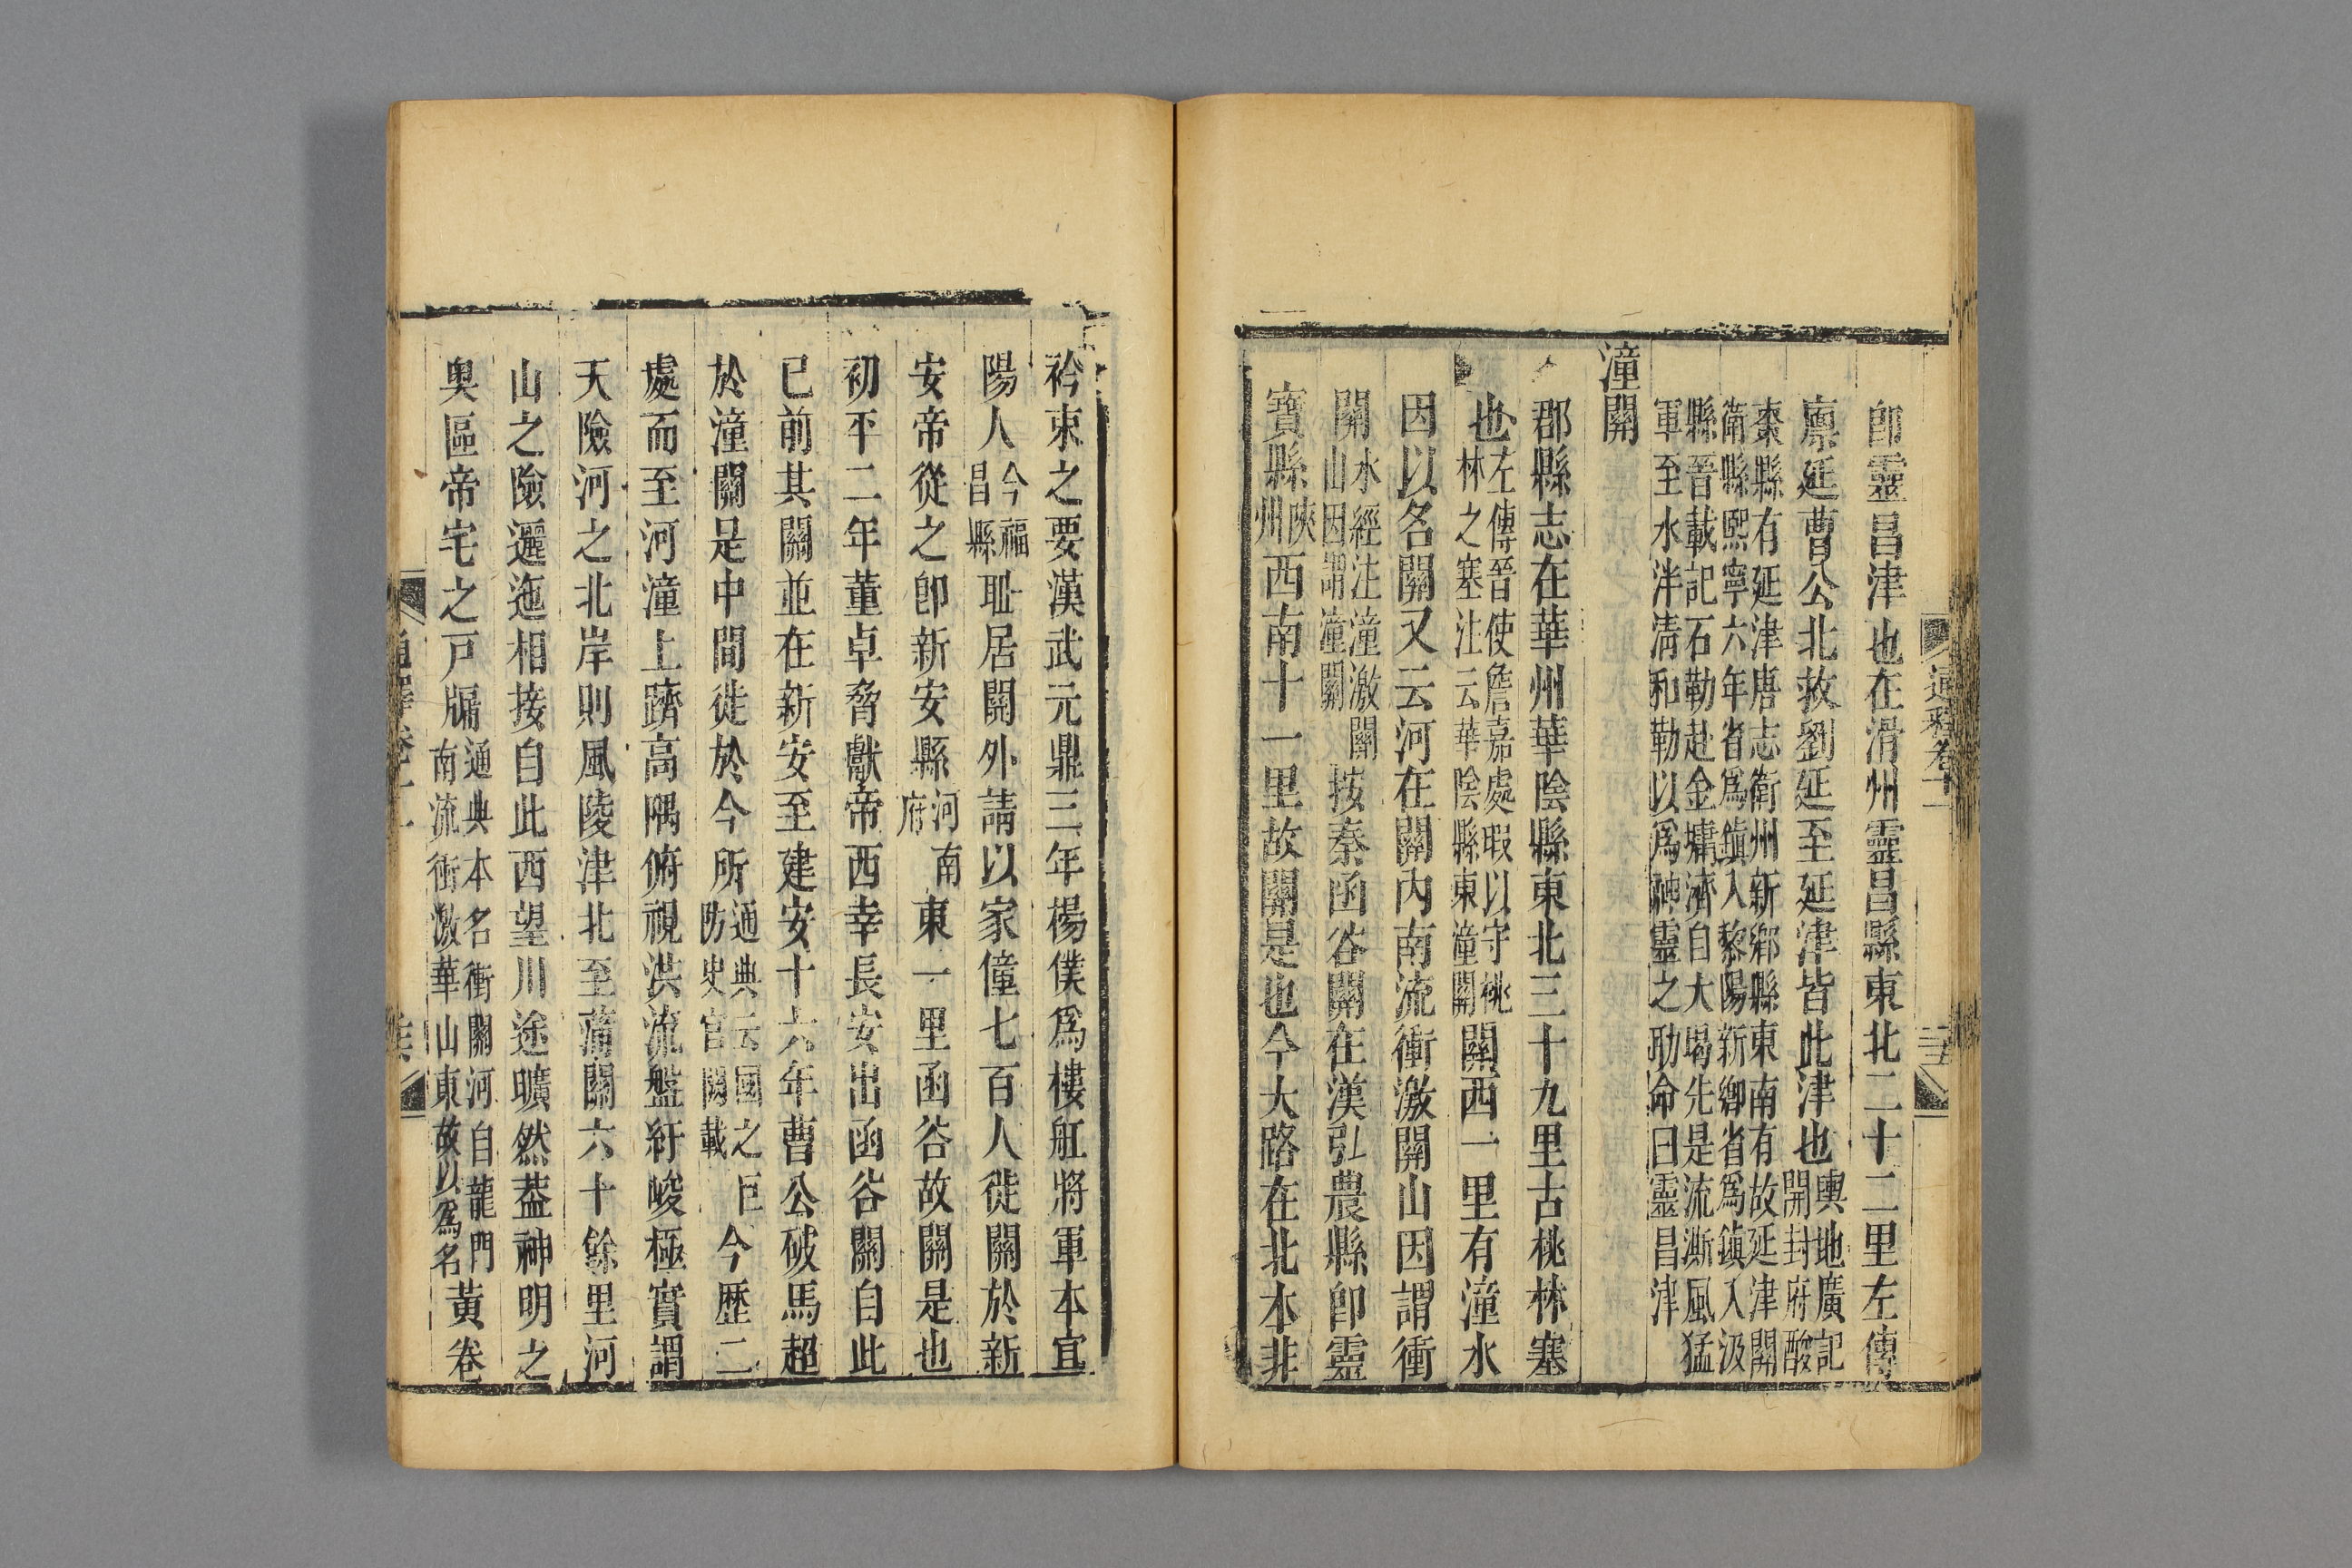 通釋卷十一
二十五
卽靈昌津也在滑州靈昌縣東北二十二里左傳
廪延曹公北救劉延至延津皆此津也輿地廣記開封府酸
棗縣有延津唐志衛州新鄉縣東南有故延津關
衛縣熙寧六年省爲鎮入黎陽新鄉省爲鎮入汲
縣晉載記石勒赴金墉濟自大堨先是流澌風猛
軍至水泮清和勒以爲神靈之助命曰靈昌津
潼關
郡縣志在華州華陰縣東北三十九里古桃林塞
也左傳晉使詹嘉處瑕以守桃林之塞注云華陰縣東潼關關西一里有潼水
因以名關又云河在關內南流衝激關山因謂衝
關水經注潼激關山因謂潼關按秦函谷關在漢弘農縣卽靈
寶縣陝州西南十一里故關是也今大路在北本非
衿束之要漢武元鼎三年楊僕爲樓船將軍本宜
陽人今福昌縣耻居關外請以家僮七百人徙關於新
安帝從之卽新安縣河南府東一里函谷故關是也
初平二年董卓脅獻帝西幸長安出函谷關自此
已前其關並在新安至建安十六年曹公破馬超
於潼關是中間徙於今所通典云國之巨防史官闕載今歷二
處而至河潼上躋高隅俯視洪流盤紆峻極實謂
天險河之北岸則風陵津北至蒲關六十餘里河
山之險邐迤相接自此西望川途曠然葢神明之
奥區帝宅之戸牖通典本名衝關河自龍門南流衝激華山東故以爲名黄卷